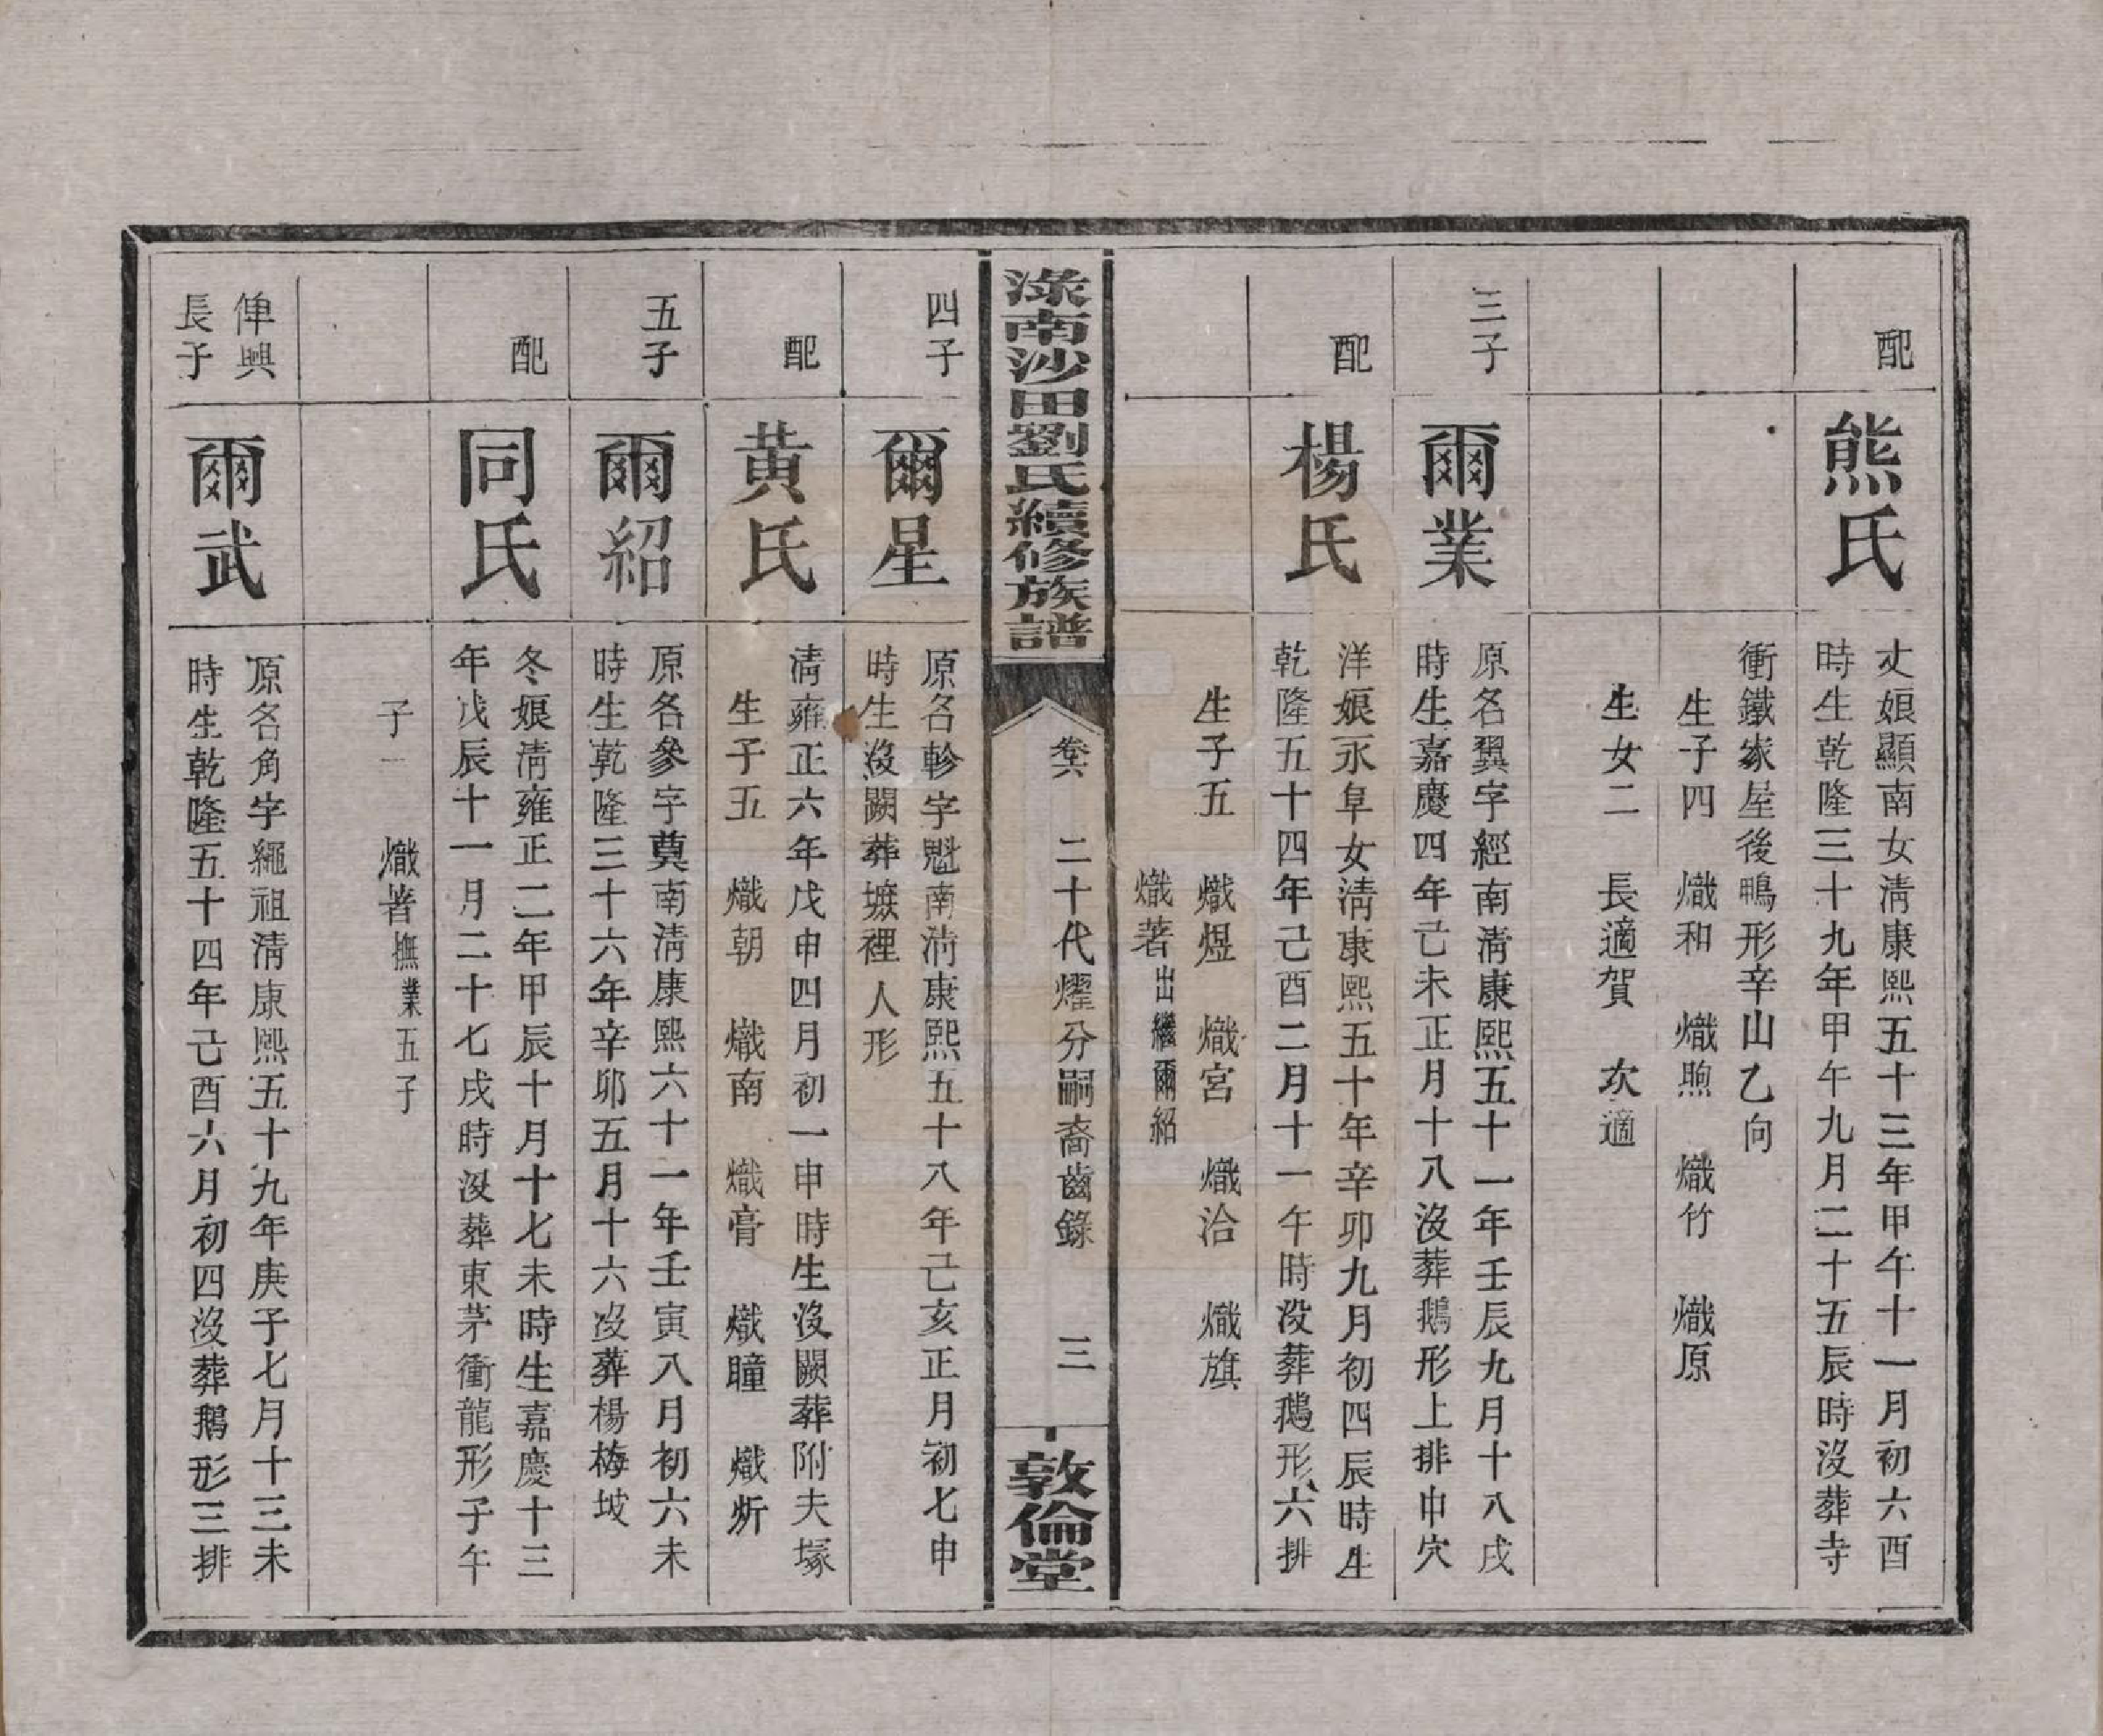 配
熊氏
丈娘顯南女淸康熙五十三年甲午十一月初六酉
時生乾隆三十九年甲午九月二十五辰時沒葬寺
衝鐵家屋後鴨形辛山乙向
生子四 熾和 熾煦 熾竹 熾原
生女二 長適賀 次適
三子
爾業
原名翼字經南淸康熙五十一年壬辰九月十八戌
時生嘉慶四年己未正月十八沒葬鵝形上排申穴
配
楊氏
洋娘永阜女淸康熙五十年辛卯九月初四辰時生
乾隆五十四年己酉二月十一午時沒葬鵝形六排
生子五 熾煜 熾宮 熾洽 熾旗
熾著出繼爾紹
淥南沙田劉氏續修族譜
卷六 二十代燿分嗣裔齒錄 三
敦倫堂
四子
爾星
原名軫字魁南淸康熙五十八年己亥正月初七申
時生沒闕葬塘裡人形
配
黃氏
淸雍正六年戊申四月初一申時生沒闕葬附夫塚
生子五 熾朝 熾南 熾膏 熾瞳 熾炘
五子
爾紹
原名參字奠南淸康熙六十一年壬寅八月初六未
時生乾隆三十六年辛卯五月十六沒葬楊梅坡
配
同氏
冬娘淸雍正二年甲辰十月十七未時生嘉慶十三
年戊辰十一月二十七戌時沒葬東茅衝龍形子午
子一 熾著撫業五子
俥興
長子
爾武
原名角字繩祖淸康熙五十九年庚子七月十三未
時生乾隆五十四年己酉六月初四沒葬鵝形三排